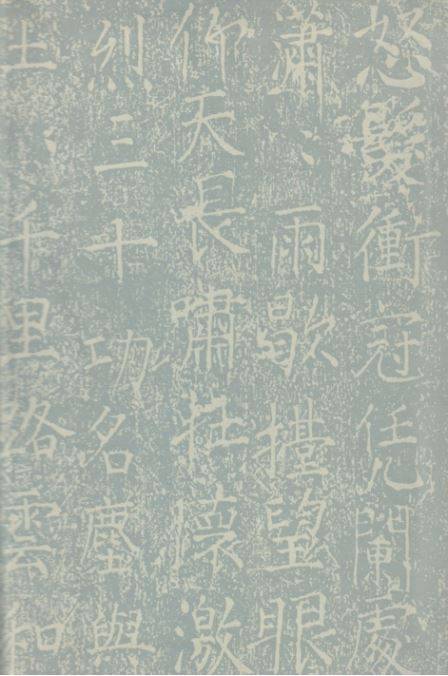 怒髮衝冠凭闌處
瀟〻雨歇擡望眼
仰天長嘯壯懷激
烈三十功名塵與
土八千里路雲和